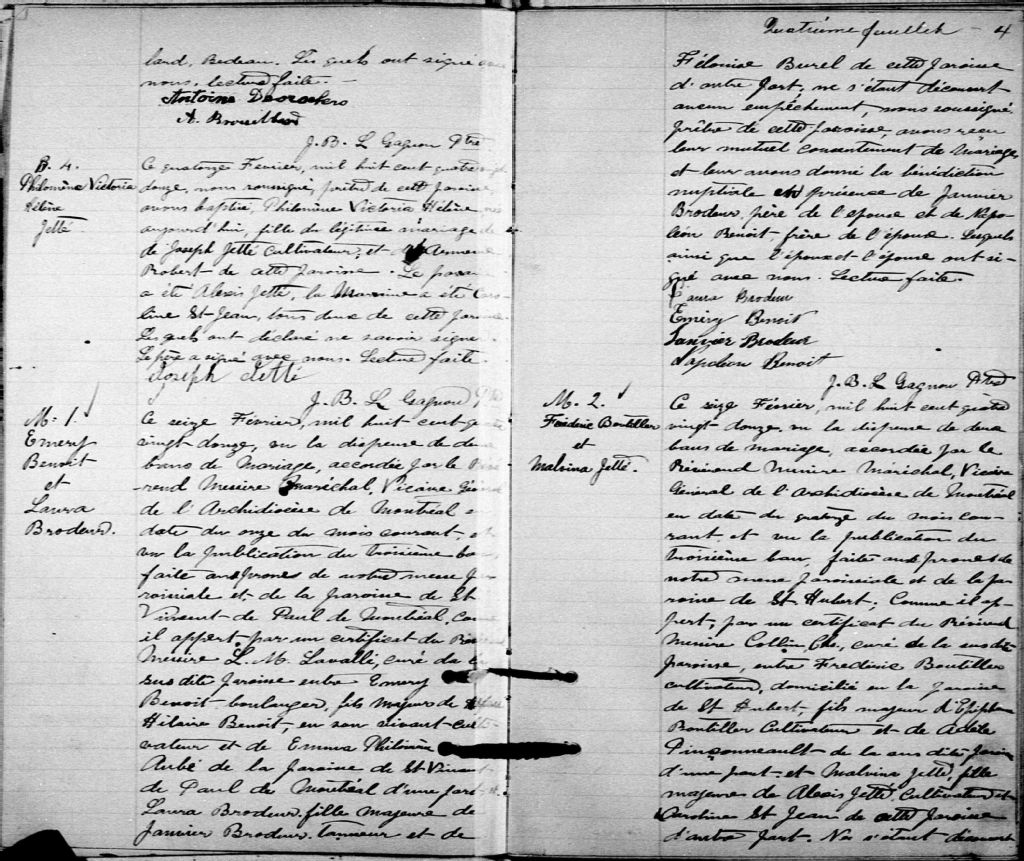 land, Bedeau. Lesquels ont signé avec
nous. Lecture faite. —
Antoine Desrochers
A. Brouillard
J. B. L. Gagnon Ptre
B. 4.
Philomène Victoria
Hélène
Jetté
Ce quatorze Février, mil huit cent quatre vingt
douze, nous soussigné, prêtre de cette paroisse,
avons baptisé, Philomène Victoria Hélène, née
aujourd'hui, fille du légitime mariage de
de Joseph Jetté Cultivateur, et
Robert de cette paroisse. Le parrain
a été Alexis Jetté, la Marraine a été Caro-
line St-Jean, tous deux de cette paroisse.
Lesquels ont déclaré ne savoir signer.
Le père a signé avec nous. Lecture faite.
Joseph Jetté
J. B. L. Gagnon Ptre
M. 1.
Emery
Benoit
et
Laura
Brodeur.
Ce seize Février, mil huit cent quatre
vingt-douze, vu la dispense de deux
bans de Mariage, accordée par le Révé-
rend Messire Maréchal, Vicaire Général
de l'Archidiocèse de Montréal en
date du onze du mois courant, et
vu la publication du troisième ban,
faite aux prônes de notre messe pa-
roissiale et de la paroisse de St
Vincent de Paul de Montréal, comme
il appert par un certificat du Révérend
Messire L. M. Lavallé, curé de la
susdite paroisse entre Emery
Benoit boulanger, fils majeur de
Hilaire Benoit, en son vivant Culti-
vateur et de Emma Philomène
Aubé de la paroisse de St Vincent
de Paul de Montréal d'une part et
Laura Brodeur, fille majeure de
Janvier Brodeur, tanneur et de
Quatrième feuillet — 4
Hélonise Burel de cette paroisse
d'autre part, ne s'étant découvert
aucun empêchement, nous soussigné,
prêtre de cette paroisse, avons reçu
leur mutuel consentement de Mariage
et leur avons donné la bénédiction
nuptiale en présence de Janvier
Brodeur, père de l'épouse et de Napo-
léon Benoit, frère de l'époux. Lesquels
ainsi que l'époux et l'épouse ont si-
gné avec nous. Lecture faite.
Laura Brodeur
Emery Benoit
Janvier Brodeur
Napoléon Benoit
J. B. L. Gagnon Ptre
M. 2.
Frédéric Bouteiller
et
Malvina Jetté.
Ce seize Février, mil huit cent quatre
vingt-douze, vu la dispense de deux
bans de mariage, accordée par le
Révérend Messire Maréchal, Vicaire
Général de l'Archidiocèse de Montréal
en date du quatorze du mois cou-
rant, et vu la publication du
troisième ban, faite aux prônes de
notre messe paroissiale et de la pa-
roisse de St Hubert, Comme il ap-
pert, par un certificat du Révérend
Messire Collin, curé de la susdite
paroisse, entre Frédéric Boutiller
cultivateur, domicilié en la paroisse
de St Hubert, fils majeur d'Epiphane
Boutiller Cultivateur et de Adèle
Pinçonneault de la susdite paroisse
d'une part et Malvina Jetté, fille
majeure de Alexis Jetté, Cultivateur et
Caroline St Jean de cette paroisse
d'autre part. Ne s'étant découvert